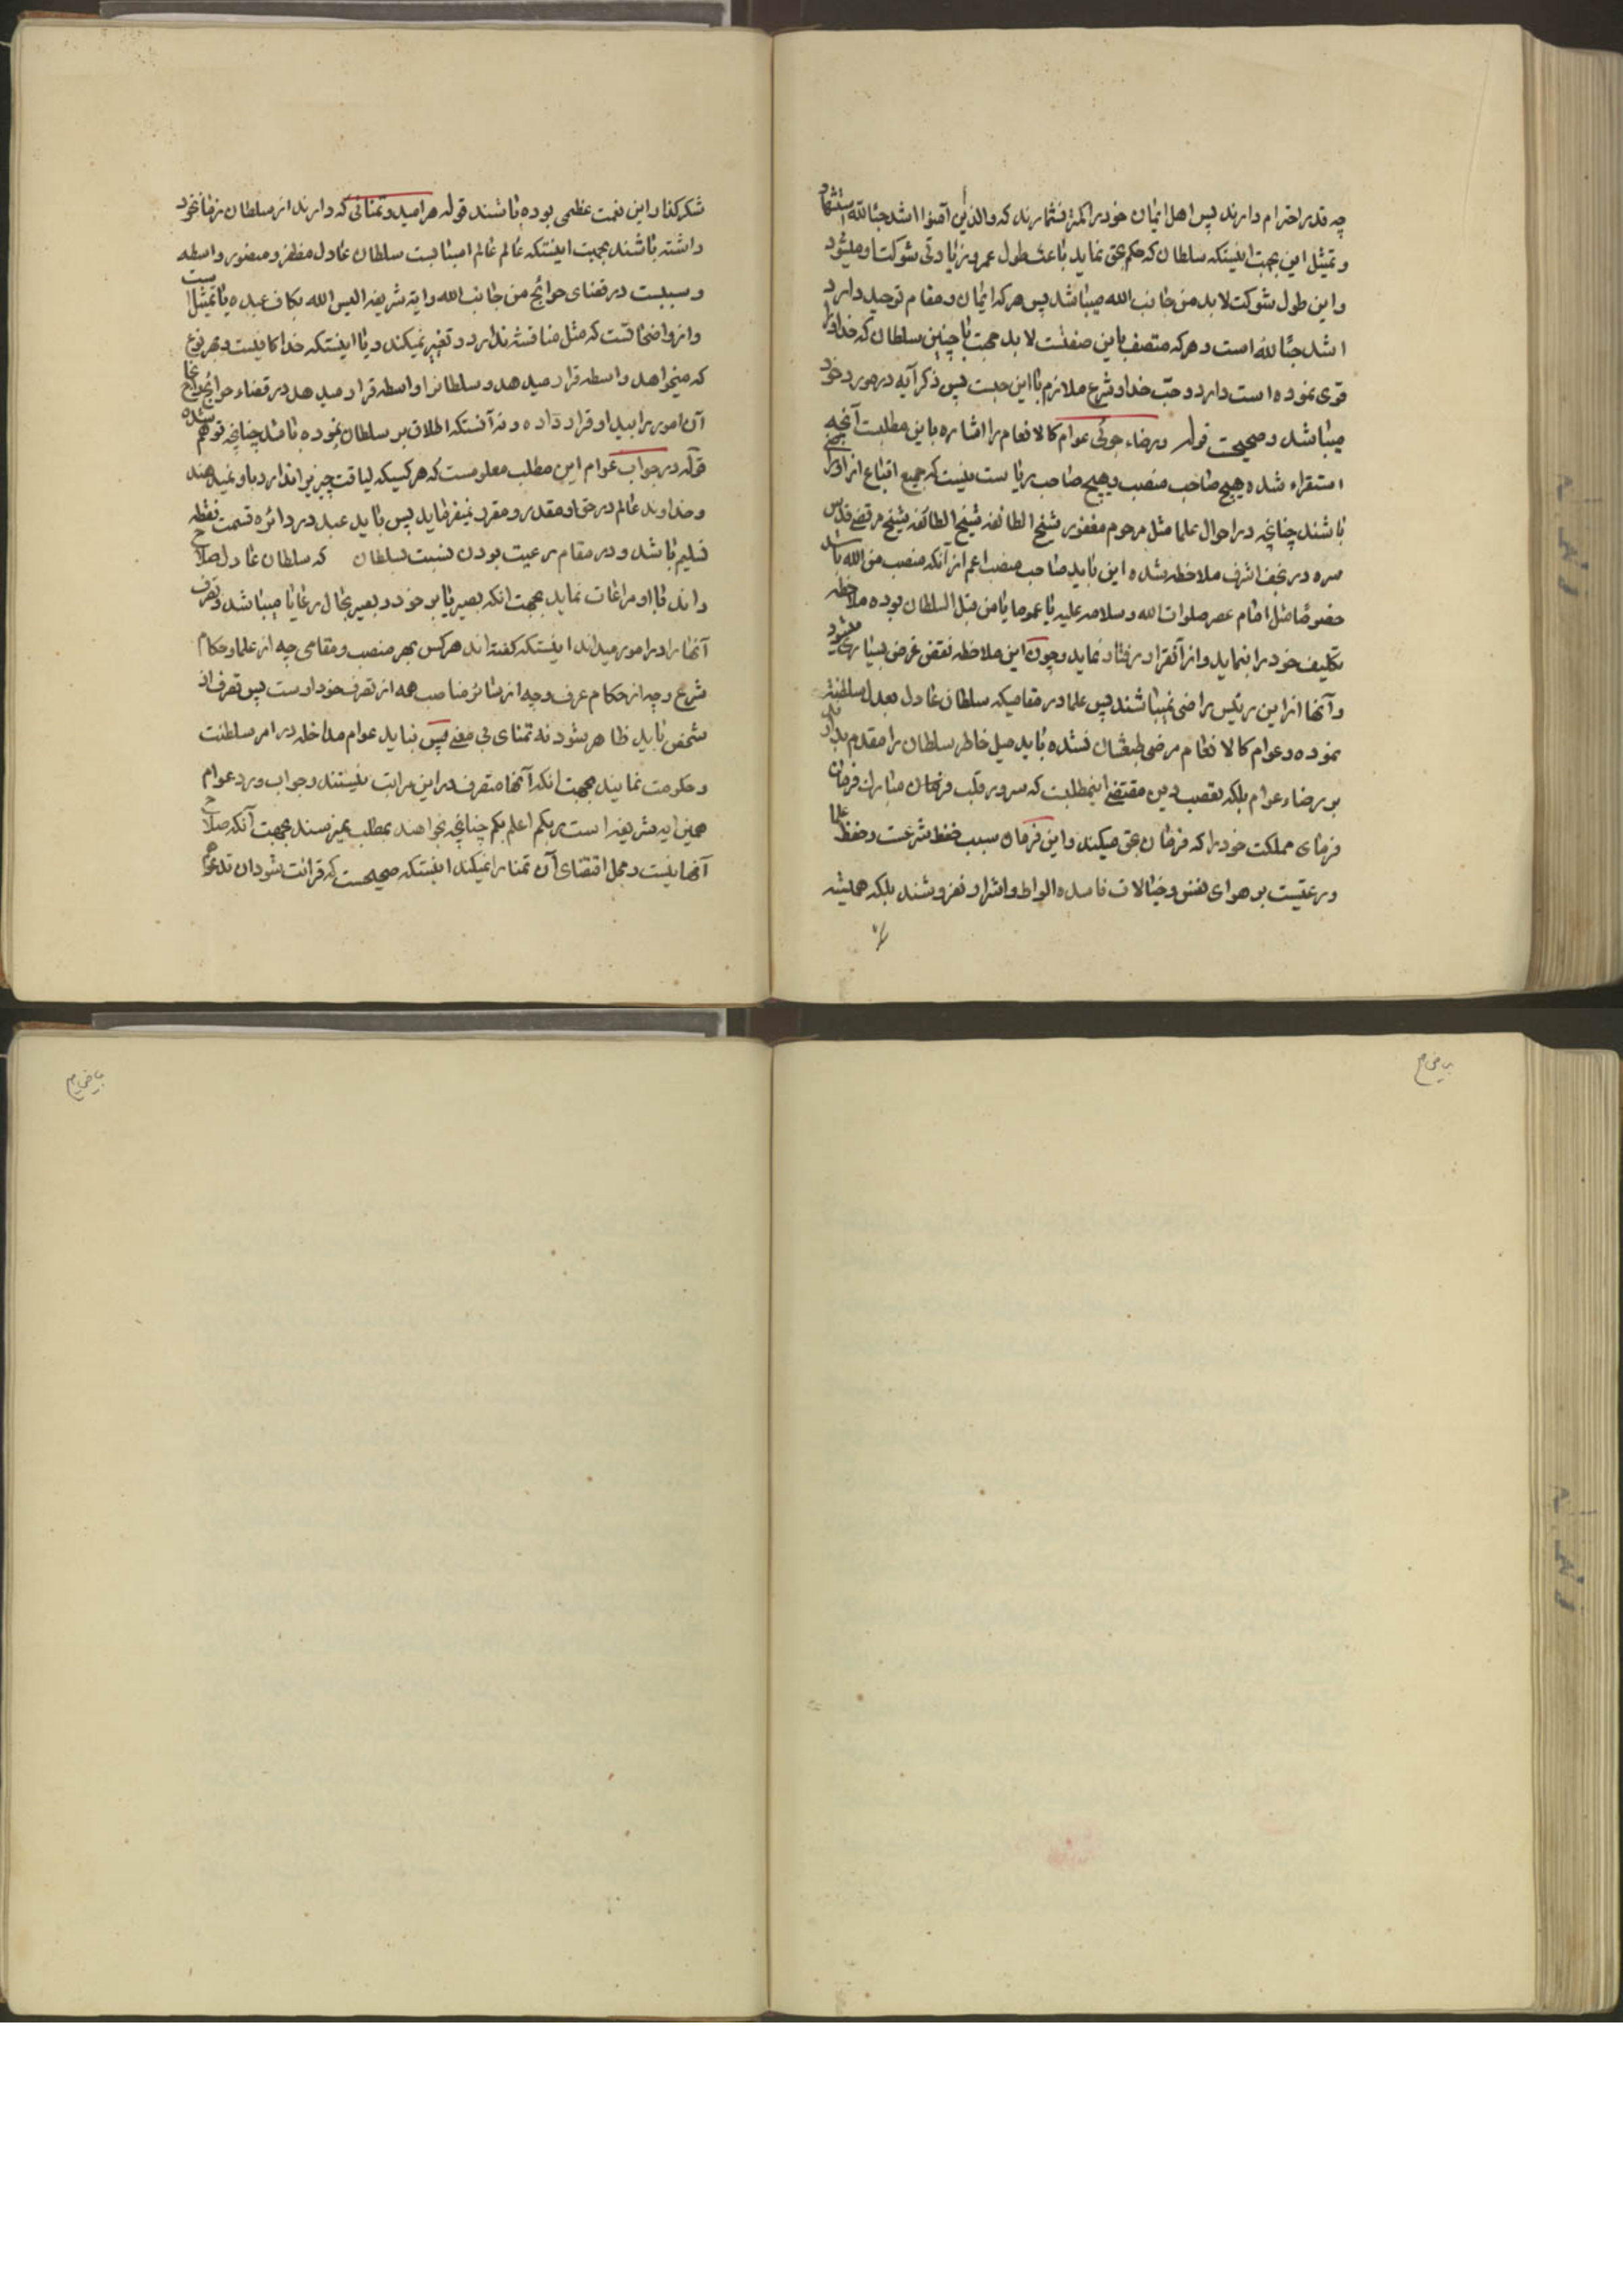 چه قدر احترام دارند پس اهل ایمان خود را کمتر نشمارند که والذین آمنوا اشد حبا لله استشهاد
و تمثیل این بجهت اینستکه سلطان که حکم بحق نماید باعث طول عمر و زیادتی شوکت او میشود
و این طول شوکت لابد من جانب الله میباشد پس هر که ایمان و مقام توحید دارد
اشد حبا لله است و هر که متصف باین صفتست لابد محبت با چنین سلطان که خدا او را
قوی نموده است دارد و حب خدا و شرع ملازم با این حبست پس ذکر آیه در مورد خود
میباشد و صحیحست قوله و رضاء جوئی عوام کالانعام را اشاره باین مطلبست آنچه
استقراء شده هیچ صاحب منصب و هیچ صاحب ریاست نیست که جمیع اتباع از او راضی
باشند چنانچه در احوال علما مثل مرحوم مغفور شیخ الطائفه شیخ مرتضی قدس
سره در نجف اشرف ملاحظه شده این باید صاحب منصب اعم از آنکه منصب من الله باشد
خصوصا مثل امام عصر صلوات الله و سلامه علیه یا عموما یا من قبل السلطان بوده ملاحظه
تکلیف خود را بنماید و از آنقرار رفتار نماید و چون این ملاحظه نقض غرض بسیاری میشود
و آنها از این رئیس راضی نمیباشند پس علما در مقامیکه سلطان عادل بعدل سلطنت
نموده و عوام کالانعام مرضی طبعشان نشده باید میل خاطر سلطان را مقدم بدارند
بر رضاء عوام بلکه تعصب دین مقتضی اینمطلبست که سرور قلب فرمان مبارک فرمان
فرمای مملکت خود را که فرمان بحق میکند و این فرمان سبب حفظ شرعست و حفظ علما
و رعیتست بر هوای نفس و خیالات فاسده الواط و اشرار نفروشند بلکه همیشه
شکر کذار این نعمت عظمی بوده باشند قوله هر امید و تمنائی که دارند از سلطان زمان خود
داشته باشند بجهت اینستکه عالم عالم اسبابست سلطان عادل مظفر و منصور واسطه
و سببست در قضای حوائج من جانب الله و ایه شریفه الیس الله بکاف عبده با تمثیل است
و از واضحاتست که مثل مناقشه ندارد و تغییر نمیکند و با اینستکه خدا کافیست بهر نوع
که میخواهد واسطه قرار میدهد و سلطانرا واسطه قرار میدهد در قضاء حوائج
آن امور را بید او قرار داده و نه آنستکه اطلاق بر سلطان نموده باشد چنانچه توهم شده
قوله در جواب عوام این مطلب معلومست که هر کسیکه لیاقت چیزیرا ندارد باو نمیدهند
و خداوند عالم در حق او مقدر و مقرر نمیفرماید پس باید عبد در دائره قسمت نقطه
تسلیم باشد و در مقام رعیت بودن نسبت بسلطان که سلطان عادل صلاح
داند با او مراعات نماید بجهت انکه بصیر با بر خود و بصیر بحال رعایا میباشد و تصرف
آنها را در امور میداند اینستکه کفته اند هر کس بهر منصب و مقامی چه از علما و حکام
شرع و چه از حکام عرف و چه از سائر مناصب همه از تصرف خود اوست پس تصرف از
شخص باید ظاهر شود نه تمنای بی معنی پس نباید عوام مداخله در امر سلطنت
و حکومت نمایند بجهت انکه آنها متصرف در این مراتب نیستند و جواب و رد عوام
همین ایه شریفه است ربکم اعلم بکم چنانچه بخواهند بمطلب نمیرسند بجهت آنکه صلاح
آنها نیست و محل اقتضای آن تمنا را نمیکند اینستکه صحیحست که قرائت شود ان تدعوا